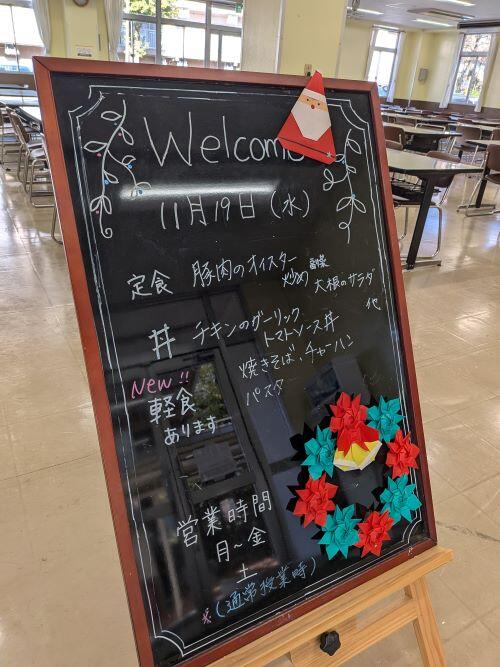 Welcome
11月19日(水)
定食 豚肉のオイスター
炒め 副菜 大根のサラダ
他
丼 チキンのガーリック
トマトソース丼
New!!
軽食 焼きそば、チャーハン
あります パスタ
営業時間
月～金
土
※(通常授業時)